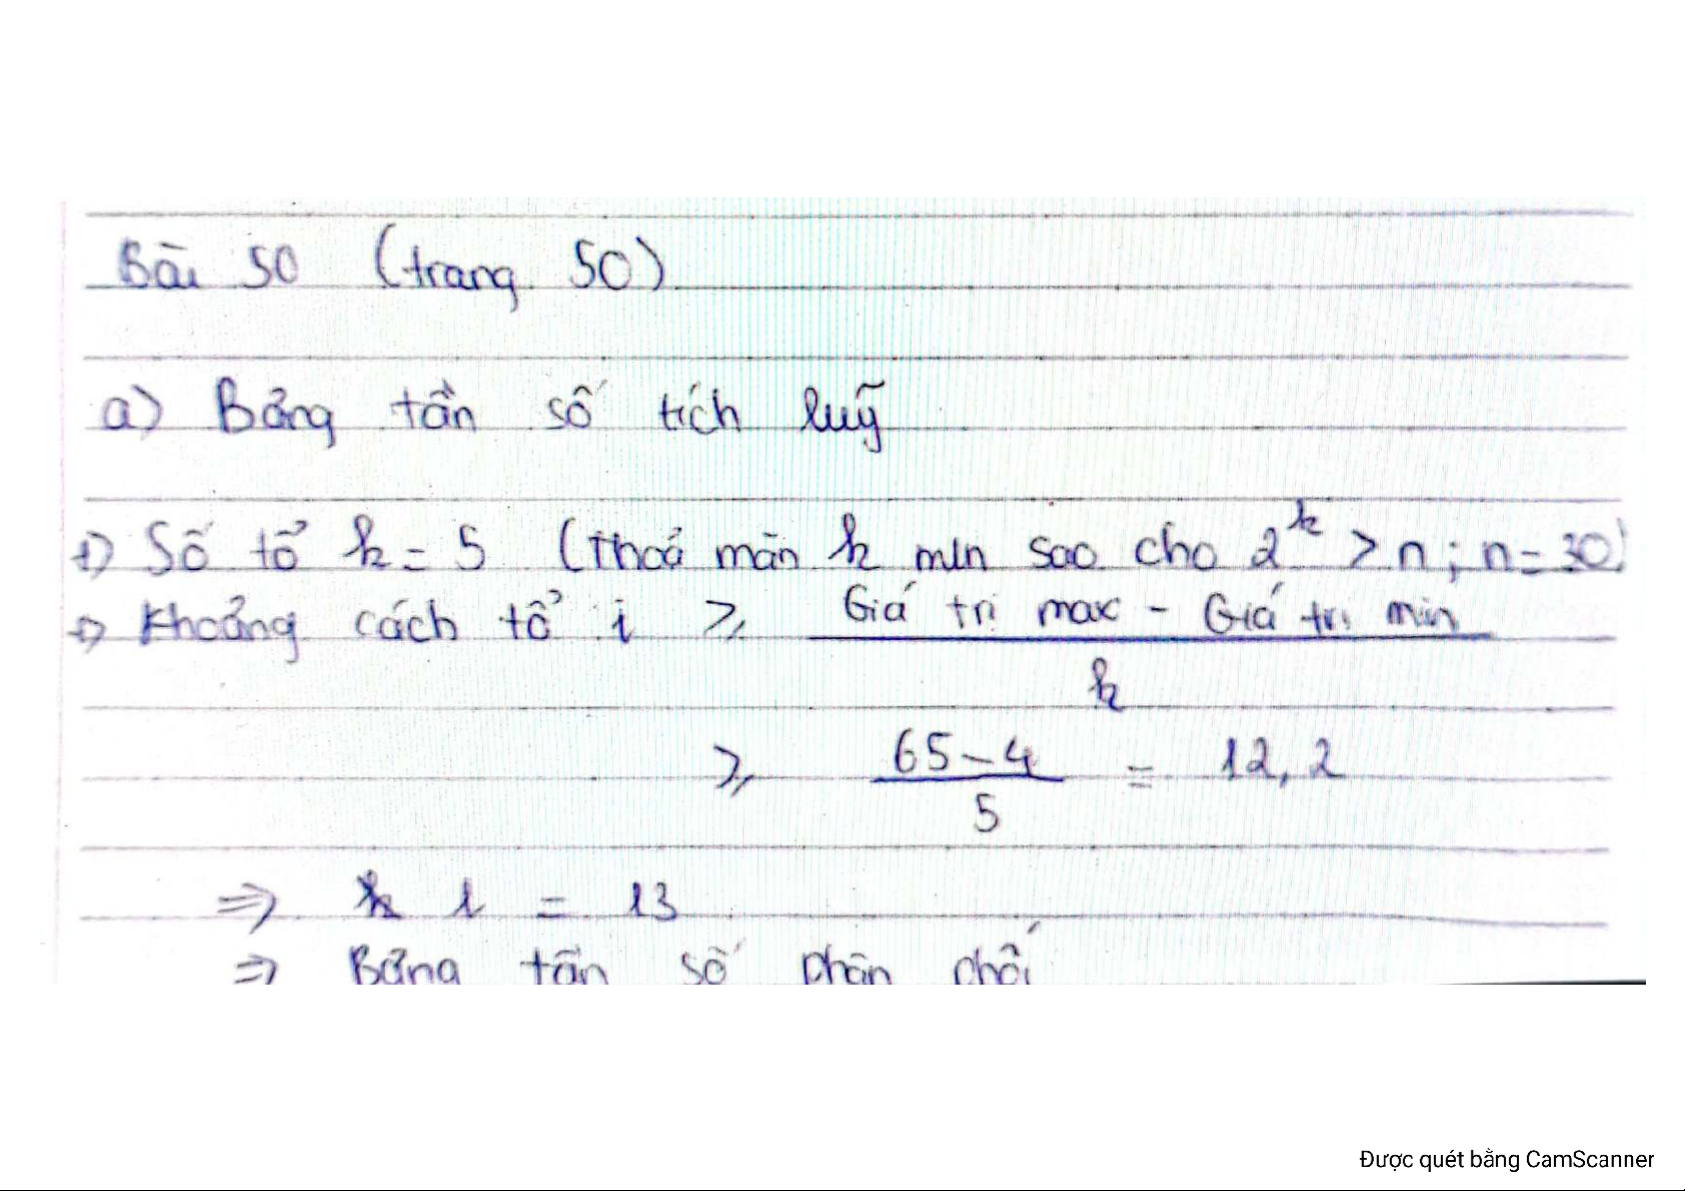 Bài 50 (trang 50)
a) Bảng tần số tích luỹ
+) Số tổ k = 5 (Thoả mãn k min sao cho 2^k > n; n = 30)
+) Khoảng cách tổ i ⩾ (Giá trị max - Giá trị min) / k
⩾ (65 - 4) / 5 = 12,2
⇒ i = 13
⇒ Bảng tần số phân phối
Được quét bằng CamScanner